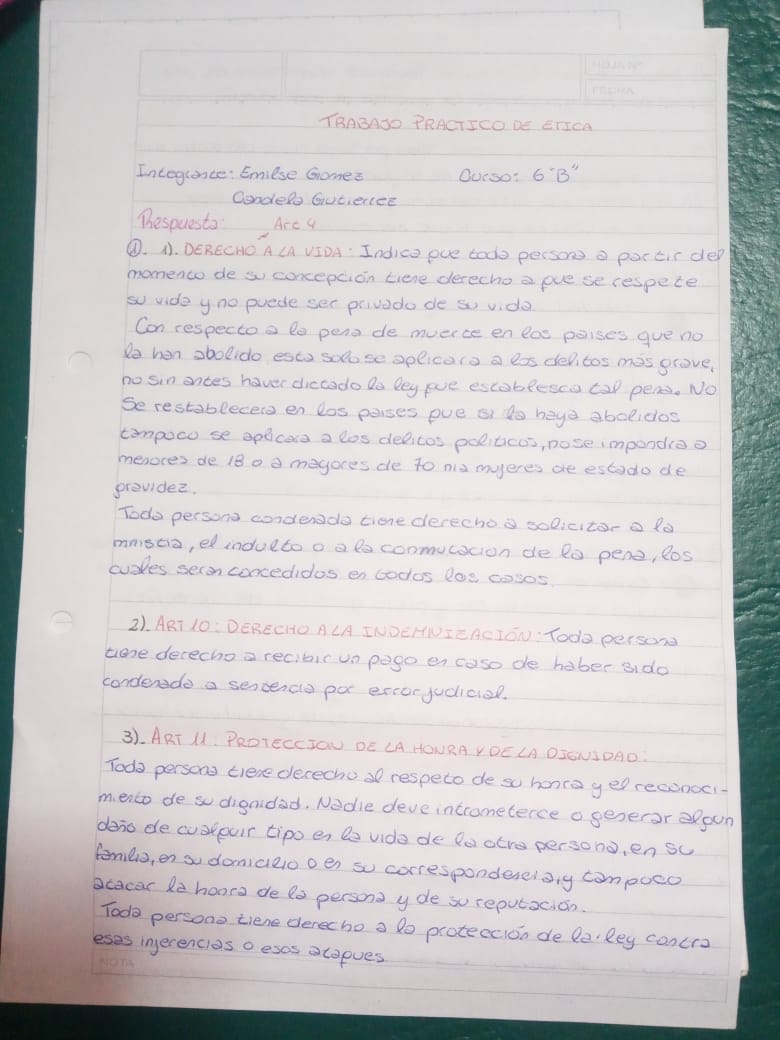 HOJA Nº
FECHA
TRABAJO PRACTICO DE ETICA
Integrante: Emilse Gomez Curso: 6 "B"
Candela Gutierrez
Respuesta: Art 4
①. 1). DERECHO A LA VIDA: Indica que toda persona a partir del
momento de su concepción tiene derecho a que se respete
su vida y no puede ser privado de su vida.
Con respecto a la pena de muerte en los paises que no
la han abolido esta solo se aplicara a los delitos más grave,
no sin antes haver dictado la ley que establesca tal pena. No
se restablecera en los paises que si la haya abolidos
tampoco se aplicara a los delitos politicos, no se impondra a
menores de 18 o a magores de 70 ni a mujeres de estado de
gravidez.
Toda persona condenada tiene derecho a solicitar a la
mnistia, el indulto o a la conmutacion de la pena, los
cuales seran concedidos en todos los casos.
2). ART 10: DERECHO A LA INDEMNIZACIÓN: Toda persona
tiene derecho a recibir un pago en caso de haber sido
condenada a sentencia por error judicial.
3). ART 11: PROTECCION DE LA HONRA Y DE LA DIGNIDAD:
Toda persona tiene derecho al respeto de su honra y el reconoci-
miento de su dignidad. Nadie deve intrometerce o generar algun
daño de cualquir tipo en la vida de la otra persona, en su
familia, en su domicilio o en su correspondencia, y tampoco
atacar la honra de la persona y de su reputación.
Toda persona tiene derecho a la protección de la ley contra
esas injerencias o esos ataques
NOTA